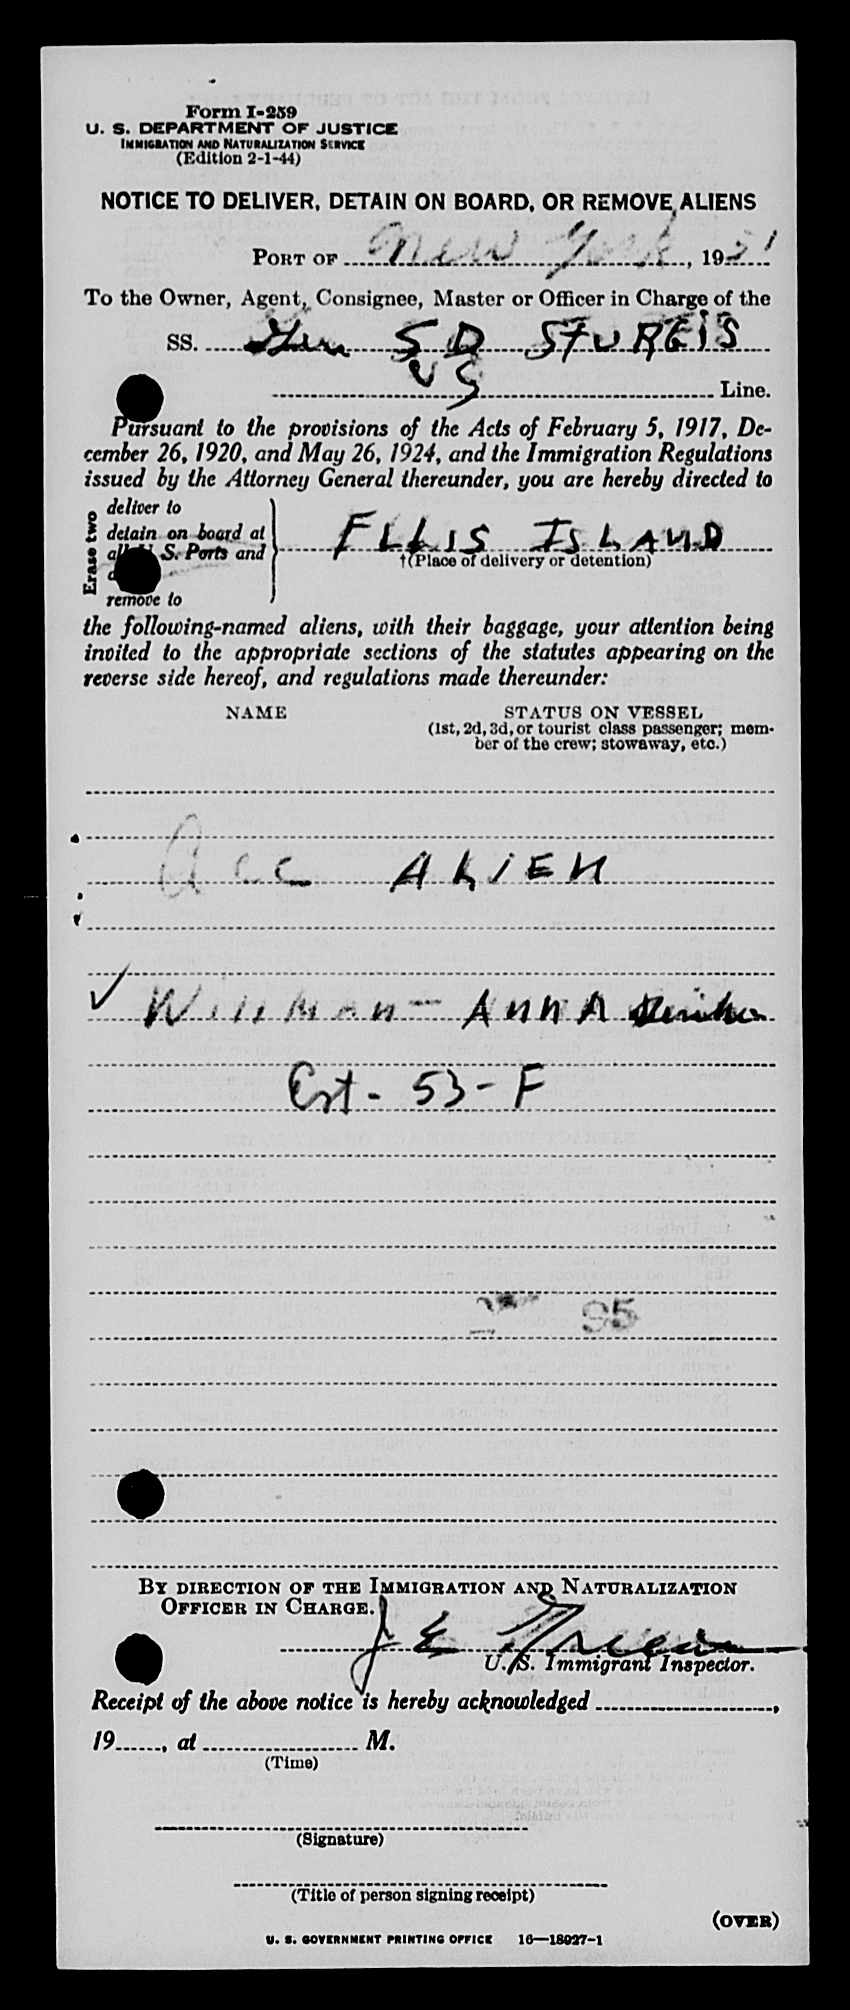 Form I-259
U. S. DEPARTMENT OF JUSTICE
IMMIGRATION AND NATURALIZATION SERVICE
(Edition 2-1-44)
NOTICE TO DELIVER, DETAIN ON BOARD, OR REMOVE ALIENS
PORT OF New York, 1951
To the Owner, Agent, Consignee, Master or Officer in Charge of the
SS. Gen SD STURGIS
US Line.
Pursuant to the provisions of the Acts of February 5, 1917, De-
cember 26, 1920, and May 26, 1924, and the Immigration Regulations
issued by the Attorney General thereunder, you are hereby directed to
Erase two
deliver to
detain on board at
all U. S. Ports and
remove to
ELLIS ISLAND
†(Place of delivery or detention)
the following-named aliens, with their baggage, your attention being
invited to the appropriate sections of the statutes appearing on the
reverse side hereof, and regulations made thereunder:
NAME STATUS ON VESSEL
(1st, 2d, 3d, or tourist class passenger; mem-
ber of the crew; stowaway, etc.)
Acc ALiEN
✓ Willman - ANNA
Est - 53 - F
95
BY DIRECTION OF THE IMMIGRATION AND NATURALIZATION
OFFICER IN CHARGE.
J E
U. S. Immigrant Inspector.
Receipt of the above notice is hereby acknowledged ,
19 , at M.
(Time)
(Signature)
(Title of person signing receipt)
(OVER)
U. S. GOVERNMENT PRINTING OFFICE 16—18027-1